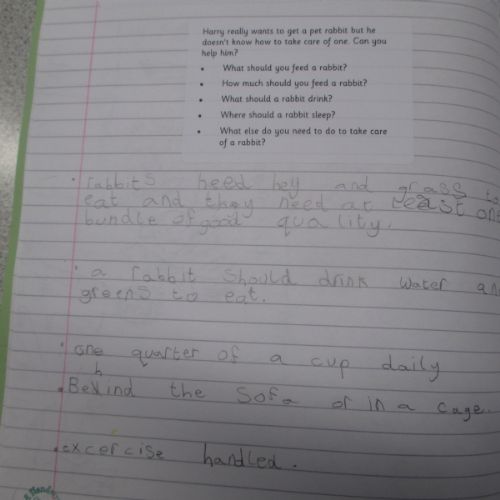 Harry really wants to get a pet rabbit but he
doesn't know how to take care of one. Can you
help him?
• What should you feed a rabbit?
• How much should you feed a rabbit?
• What should a rabbit drink?
• Where should a rabbit sleep?
• What else do you need to do to take care
of a rabbit?
• rabbits need hey and grass to
eat and they need at least one
bundle of good quality.
• a rabbit should drink water and
greens to eat.
• one quarter of a cup daily
• Behind the Sofa or in a cage.
• excercise handled.